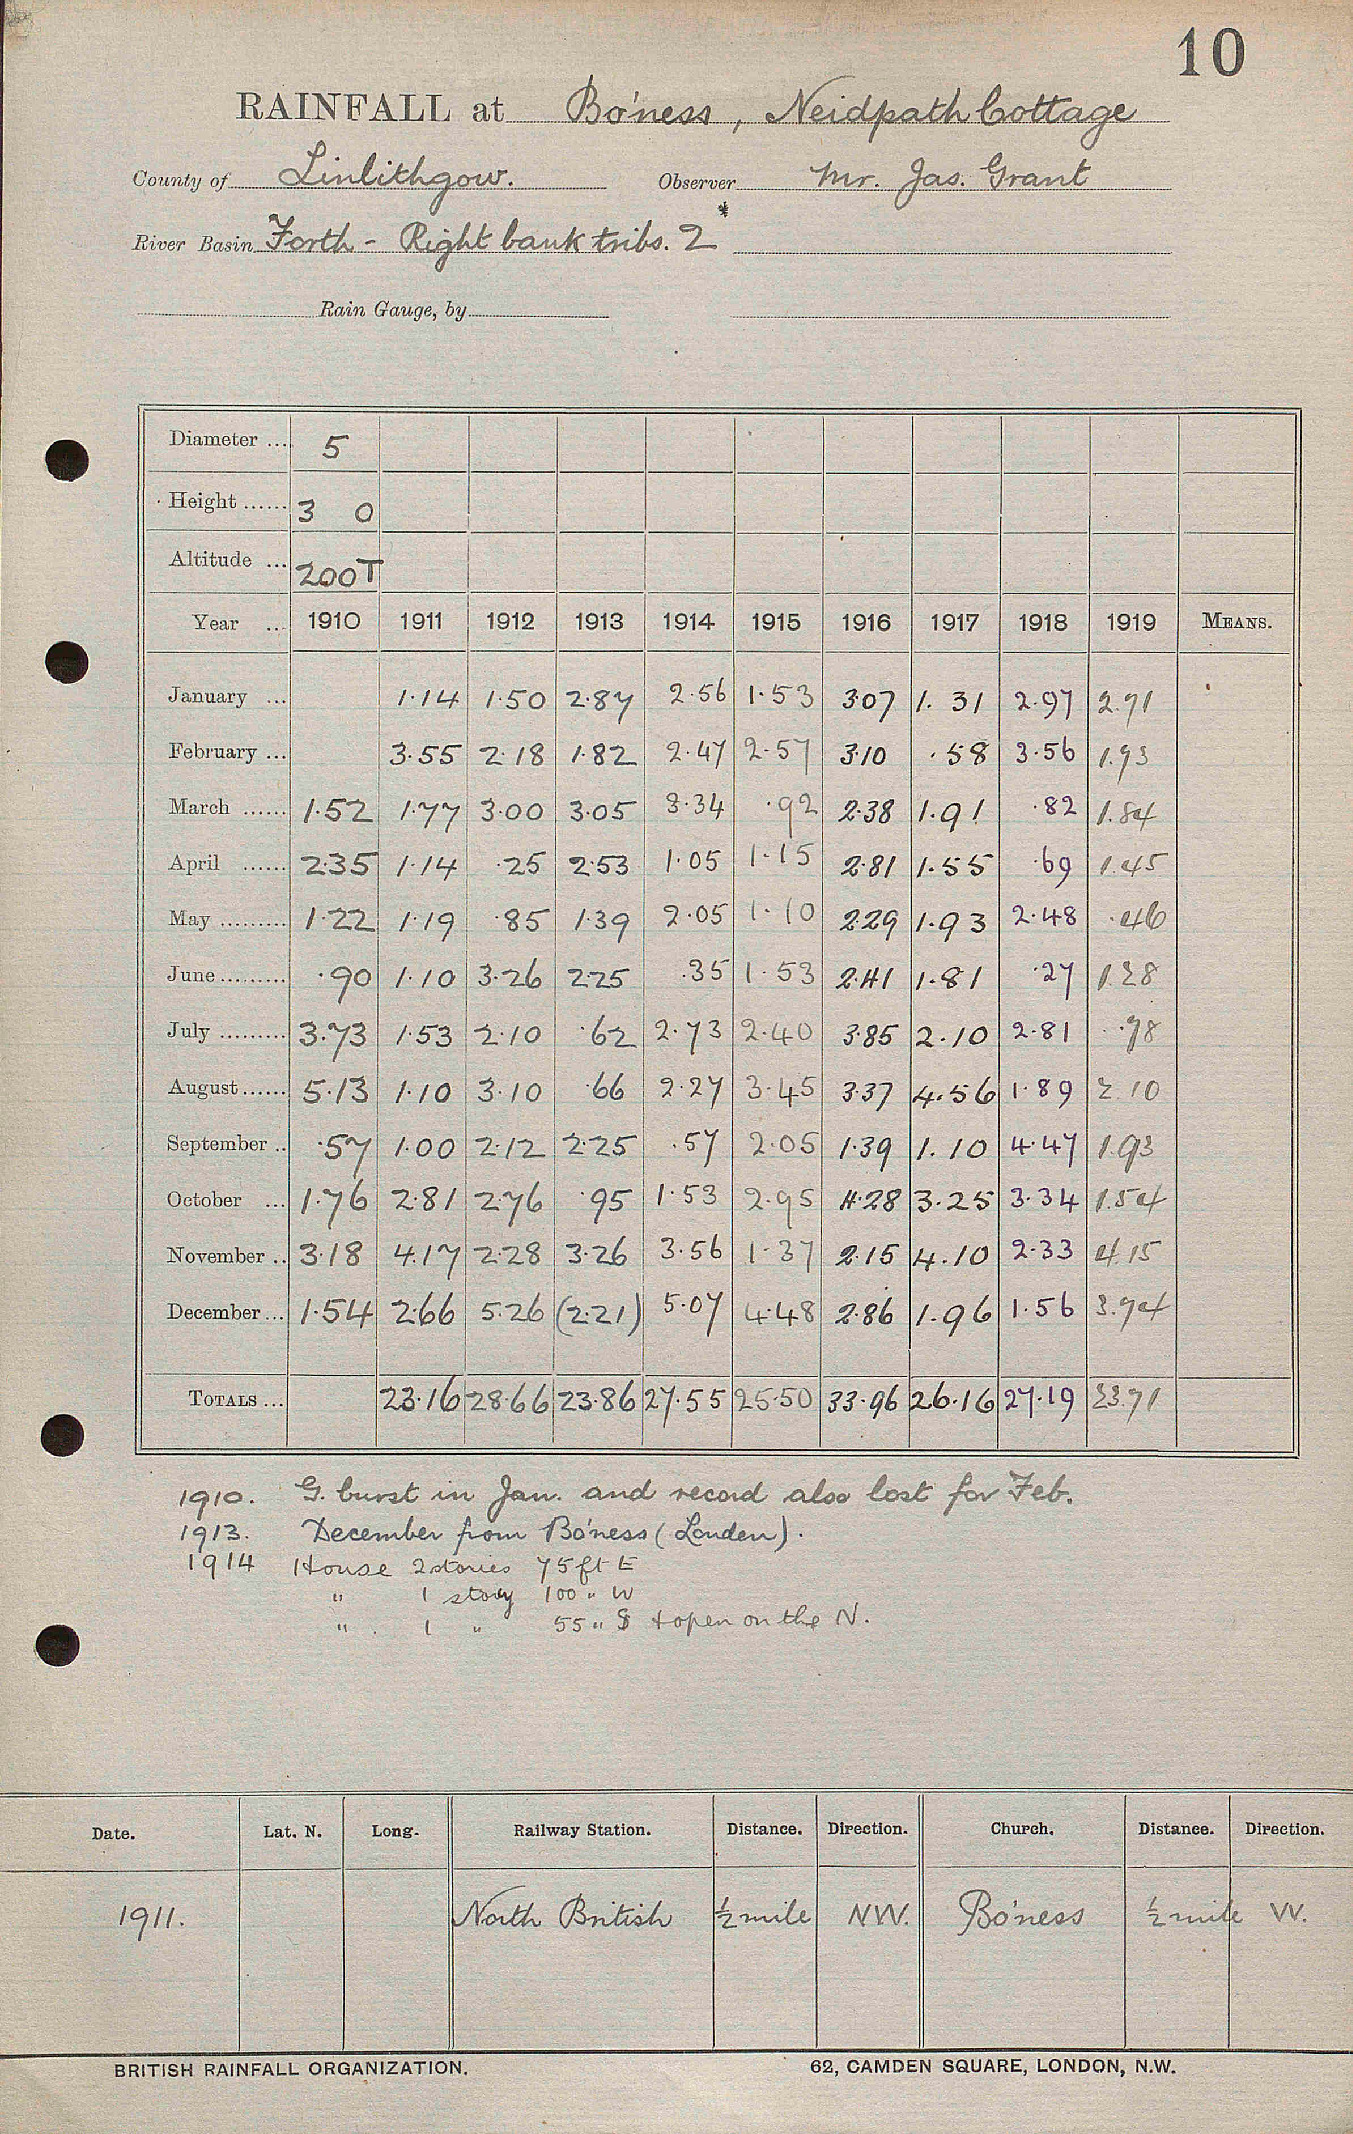 10
RAINFALL at Bo'ness, Neidpath Cottage
County of Linlithgow. Observer Mr. Jas. Grant
*
River Basin Forth - Right bank tribs. 2
Rain Gauge, by
Diameter ... 5
Height ...... 3 0
Altitude ... 200T
Year ... 1910 1911 1912 1913 1914 1915 1916 1917 1918 1919 MEANS.
January ... 1.14 1.50 2.87 2.56 1.53 3.07 1.31 2.97 2.71
February ... 3.55 2.18 1.82 2.47 2.57 3.10 .58 3.56 1.73
March ...... 1.52 1.77 3.00 3.05 3.34 .92 2.38 1.91 .82 1.84
April ...... 2.35 1.14 .25 2.53 1.05 1.15 2.81 1.55 .69 1.45
May ......... 1.22 1.19 .85 1.39 2.05 1.10 2.29 1.93 2.48 .46
June ......... .90 1.10 3.26 2.25 .35 1.53 2.41 1.81 .27 1.28
July ......... 3.73 1.53 2.10 .62 2.73 2.40 3.85 2.10 2.81 .78
August ...... 5.13 1.10 3.10 .66 2.27 3.45 3.37 4.56 1.89 2.10
September .. .57 1.00 2.12 2.25 .57 2.05 1.39 1.10 4.47 1.93
October ... 1.76 2.81 2.76 .95 1.53 2.95 4.28 3.25 3.34 1.54
November .. 3.18 4.17 2.28 3.26 3.56 1.37 2.15 4.10 2.33 4.15
December ... 1.54 2.66 5.26 (2.21) 5.07 4.48 2.86 1.96 1.56 3.74
TOTALS ... 23.16 28.66 23.86 27.55 25.50 33.96 26.16 27.19 23.71
1910. G. burst in Jan. and record also lost for Feb.
1913. December from Bo'ness (Louden).
1914 House 2 stories 75 ft E
" 1 story 100 " W
" 1 " 55 " S + open on the N.
Date. Lat. N. Long. Railway Station. Distance. Direction. Church. Distance. Direction.
1911. North British ½ mile NW. Bo'ness ½ mile W.
BRITISH RAINFALL ORGANIZATION. 62, CAMDEN SQUARE, LONDON, N.W.